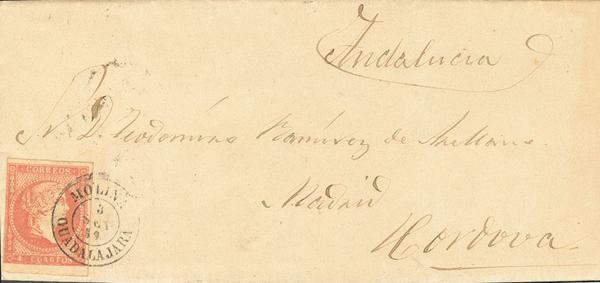 Andalucia
S. D. Teodomiro Ramirez de Arellano
Madrid
Cordova
CORREOS
4 CUARTOS
MOLINA
3
GUADALAJARA